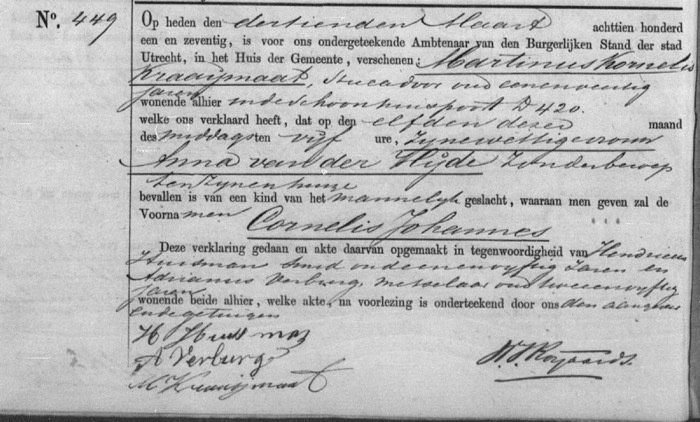 No. 449
Op heden den dertienden Maart achttien honderd
een en zeventig, is voor ons ondergeteekende Ambtenaar van den Burgerlijken Stand der stad
Utrecht, in het Huis der Gemeente, verschenen: Martinus Kornelis
Kraaijmaat, Stucadoor oud eenenveertig
jaren
wonende alhier in de Schoonhuispoort D 420.
welke ons verklaard heeft, dat op den elfden dezer maand
des middags ten vijf ure, zijne wettige vrouw
Anna van der Heyde zonder beroep
ten zijnen huize
bevallen is van een kind van het mannelijk geslacht, waaraan men geven zal de
Voornamen Cornelis Johannes
Deze verklaring gedaan en akte daarvan opgemaakt in tegenwoordigheid van Hendricus
Huisman Smid oud eenenvijftig Jaren en
Adrianus Verburg, metselaar oud tweeenvijftig
jaren
wonende beide alhier, welke akte, na voorlezing is onderteekend door ons den aangever
en de getuigen
H Huisman
A Verburg
M Kraaijmaat